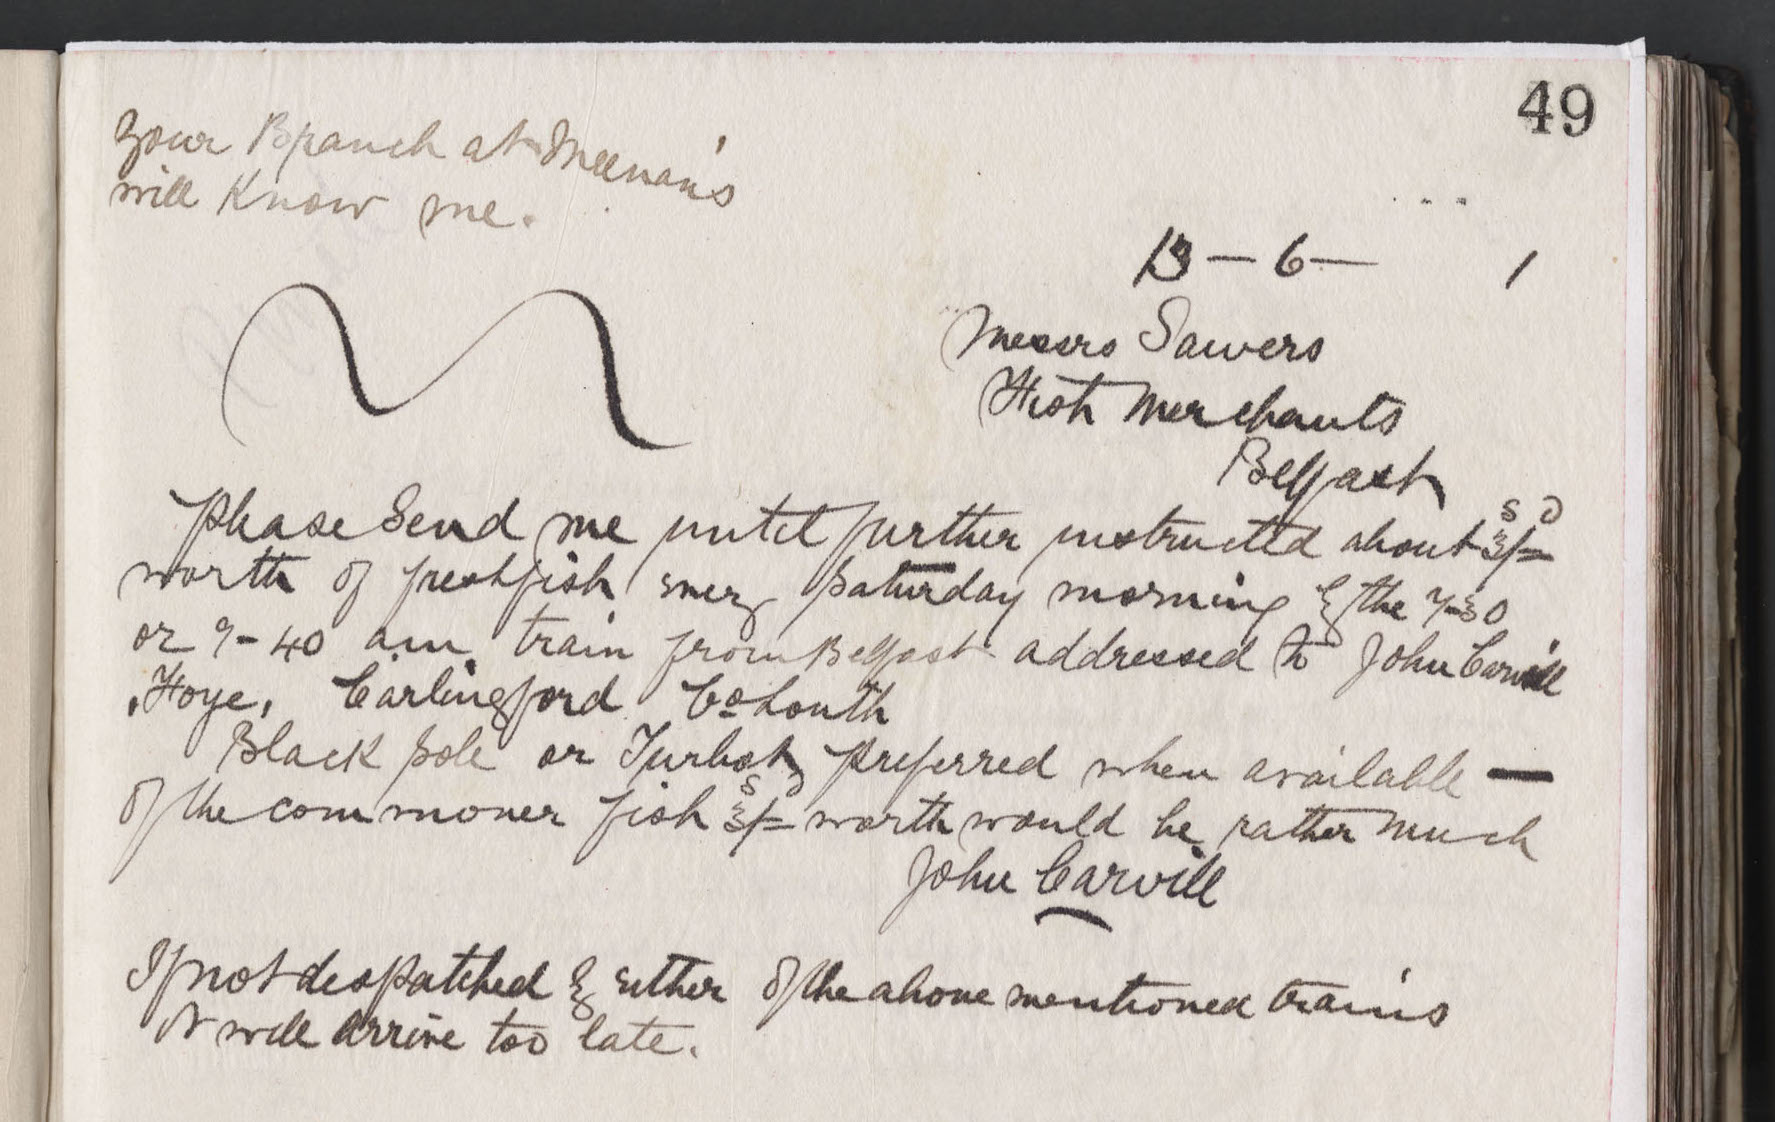 49
Your Branch at Meenan's
will Know me.
13 – 6 – 1
Messrs Sawers
Fish Merchants
Belfast
Please Send me until further instructed about 3/= s d
worth of fresh fish every Saturday morning by the 7-30
or 9-40 am train from Belfast addressed to John Carvill
, Foye, Carlingford Co Louth
Black Sole or Turbot preferred when available —
of the commoner fish 3/= s d worth would be rather much
John Carvill
If not despatched by either of the above mentioned trains
it will arrive too late.